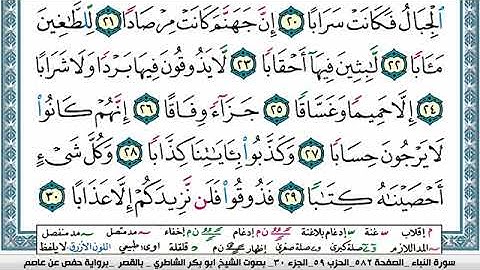 الْجِبَالُ فَكَانَتْ سَرَابًا ٢٠ إِنَّ جَهَنَّمَ كَانَتْ مِرْصَادًا ٢١ لِلطَّٰغِينَ
مَـَٔابًا ٢٢ لَّٰبِثِينَ فِيهَآ أَحْقَابًا ٢٣ لَا يَذُوقُونَ فِيهَا بَرْدًا وَلَا شَرَابًا
٢٤ إِلَّا حَمِيمًا وَغَسَّاقًا ٢٥ جَزَآءً وِفَاقًا ٢٦ إِنَّهُمْ كَانُوا۟
لَا يَرْجُونَ حِسَابًا ٢٧ وَكَذَّبُوا۟ بِـَٔايَٰتِنَا كِذَّابًا ٢٨ وَكُلَّ شَىْءٍ
أَحْصَيْنَٰهُ كِتَٰبًا ٢٩ فَذُوقُوا۟ فَلَن نَّزِيدَكُمْ إِلَّا عَذَابًا ٣٠
م إقلاب س غنة إدغام بلاغنة إدغام إخفاء مد متصل مد منفصل
المد اللازم صلة كبرى صلة صغرى إظهار قلقلة طبيعي اللون الأزرق لا يلفظ
سورة النباء _ الصفحة ٥٨٢_ الحزب ٥٩_ الجزء ٣٠_ بصوت الشيخ ابو بكر الشاطري _ بالقصر _ برواية حفص عن عاصم